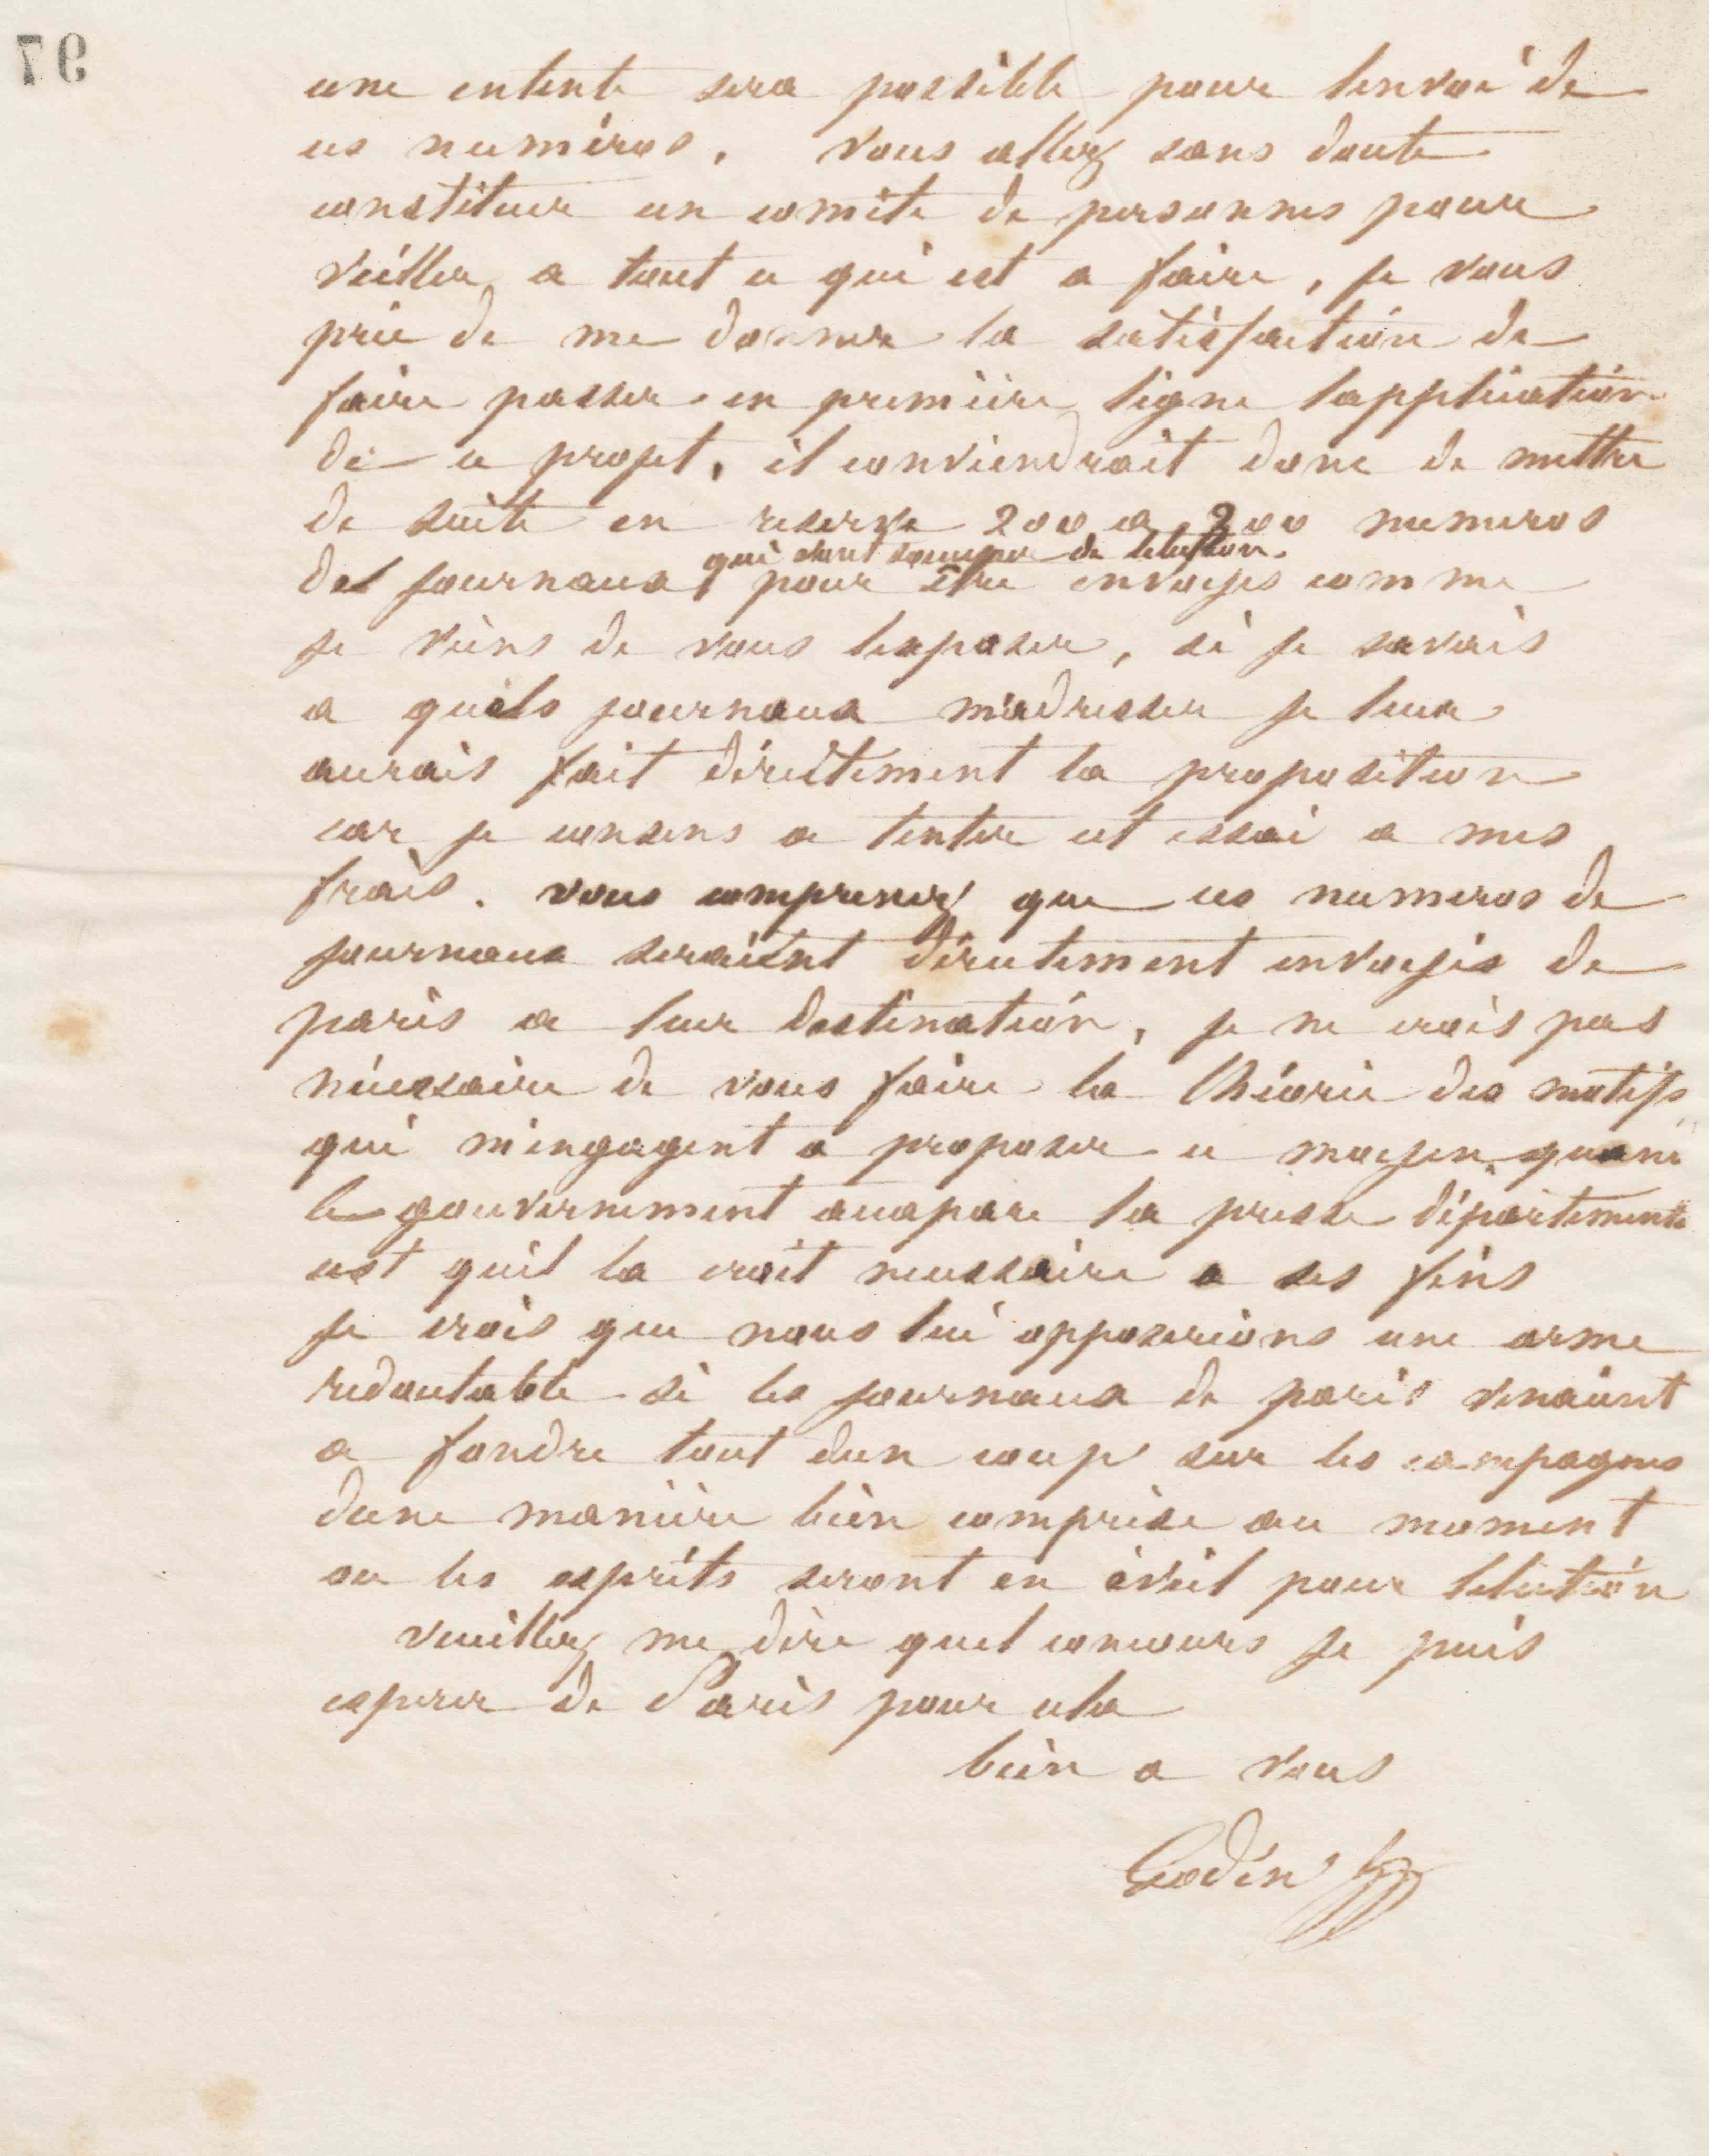 97
une entente sera possible pour lenvoi de
ces numéros. Vous allez sans doute
constituer un comite de personnes pour
veiller a tout ce qui est a faire, je vous
prie de me donner la satisfaction de
faire passer en première ligne lapplication
de ce projet, il conviendrait donc de mettre
de suite en reserve 200 a 200 numeros
qui vont soccuper de lelection.
des journaux pour être envoyés comme
je viens de vous lexposer, si je savais
a quels journaux m'adresser je leur
aurais fait directement la proposition
car je consens a tenter cet essai a mes
frais. vous comprenez que ces numeros de
journaux seraient directement envoyés de
paris a leur destination, je ne crois pas
nécessaire de vous faire la théorie des motifs
qui m'engagent a proposer ce moyen, quand
le gouvernement accapare la presse départementale
cest quil la croit necessaire a ses fins
je crois que nous lui opposerions une arme
redoutable si les journaux de paris venaient
a fondre tout dun coup sur les campagnes
dune manière bien comprise au moment
ou les esprits seront en éveil pour lelection
veuillez me dire quel concours je puis
esperer de Paris pour cela
bien a vous
Godin